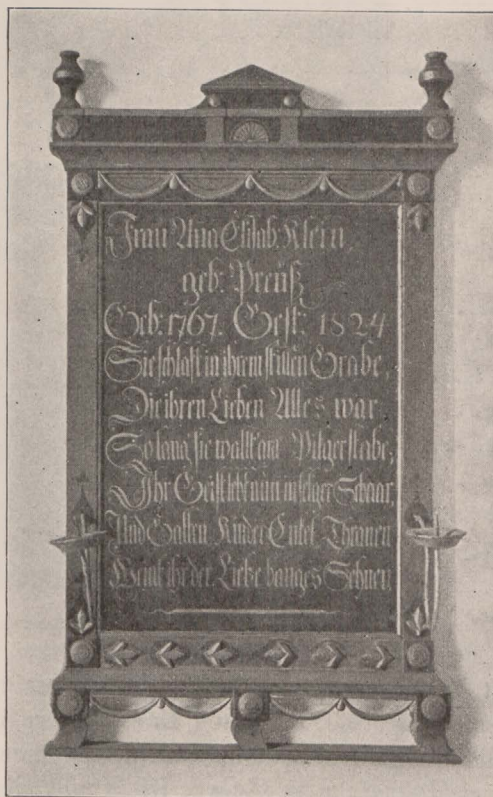 Frau Ana Elisab: Klein,
geb: Preuß
Geb: 1767. Gest: 1824
Sie schlaft in ihrem stillen Grabe,
Die ihren Lieben Alles war
So lang sie wallt am Pilgerstabe,
Ihr Geist lebt nun in selger Schaar,
Und Gatten Kinder Enkel Thranen
Weint ihr der Liebe banges Sehnen